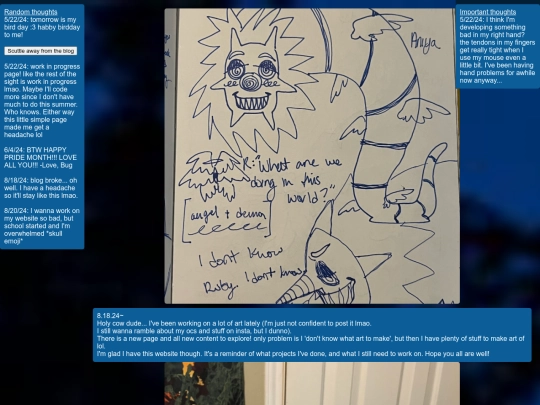 Random thoughts
5/22/24: tomorrow is my
bird day :3 habby birdday
to me!
Scuttle away from the blog
5/22/24: work in progress
page! like the rest of the
sight is work in progress
lmao. Maybe I'll code
more since I don't have
much to do this summer.
Who knows. Either way
this little simple page
made me get a
headache lol
6/4/24: BTW HAPPY
PRIDE MONTH!!! LOVE
ALL YOU!!! -Love, Bug
8/18/24: blog broke... oh
well. I have a headache
so it'll stay like this lmao.
8/20/24: I wanna work on
my website so bad, but
school started and I'm
overwhelmed *skull
emoji*
R: "What are we
doing in this
world?"
angel + demon
eeeee
I dont know
Ruby, I dont know
Important thoughts
5/22/24: I think I'm
developing something
bad in my right hand?
the tendons in my fingers
get really tight when I
use my mouse even a
little bit. I've been having
hand problems for awhile
now anyway...
8.18.24~
Holy cow dude... I've been working on a lot of art lately (I'm just not confident to post it lmao.
I still wanna ramble about my ocs and stuff on insta, but I dunno).
There is a new page and all new content to explore! only problem is I 'don't know what to make', but then I have plenty of stuff to make art of
lol.
I'm glad I have this website though. It's a reminder of what projects I've done, and what I still need to work on. Hope you all are well!